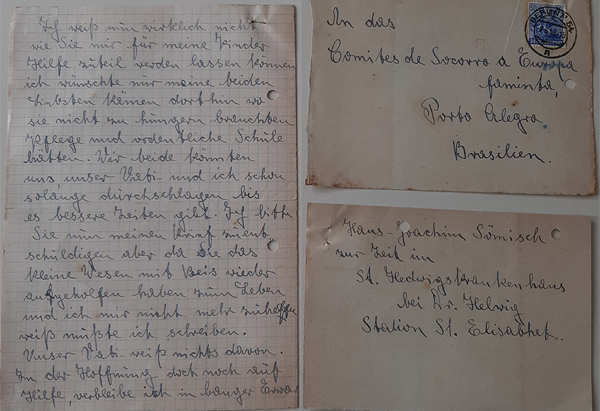 Ich weiß nun wirklich nicht
wie Sie mir für meine Kinder
Hilfe zuteil werden lassen können
ich wünschte nur meine beiden
Liebsten kämen dorthin wo
sie nicht zu hungern brauchten
Pflege und ordentliche Schule
hätten. Wir beide könnten
uns, unser Vati und ich schon
solange durchschlagen bis
es bessere Zeiten gibt. Ich bitte
Sie nun meinen Brief zu ent-
schuldigen aber da Sie das
kleine Wesen mit Reis wieder
aufgeholfen haben zum Leben
und ich mir nicht mehr zu helfen
weiß mußte ich schreiben.
Unser Vati weiß nichts davon.
In der Hoffnung doch noch auf
Hilfe, verbleibe ich in banger
An das
Comites de Socorro a Europa
faminta,
Porto Alegra.
Brasilien.
Hans-Joachim Sömisch
zur Zeit in
St. Hedwigskrankenhaus
bei Dr. Helwig
Station St. Elisabhet.